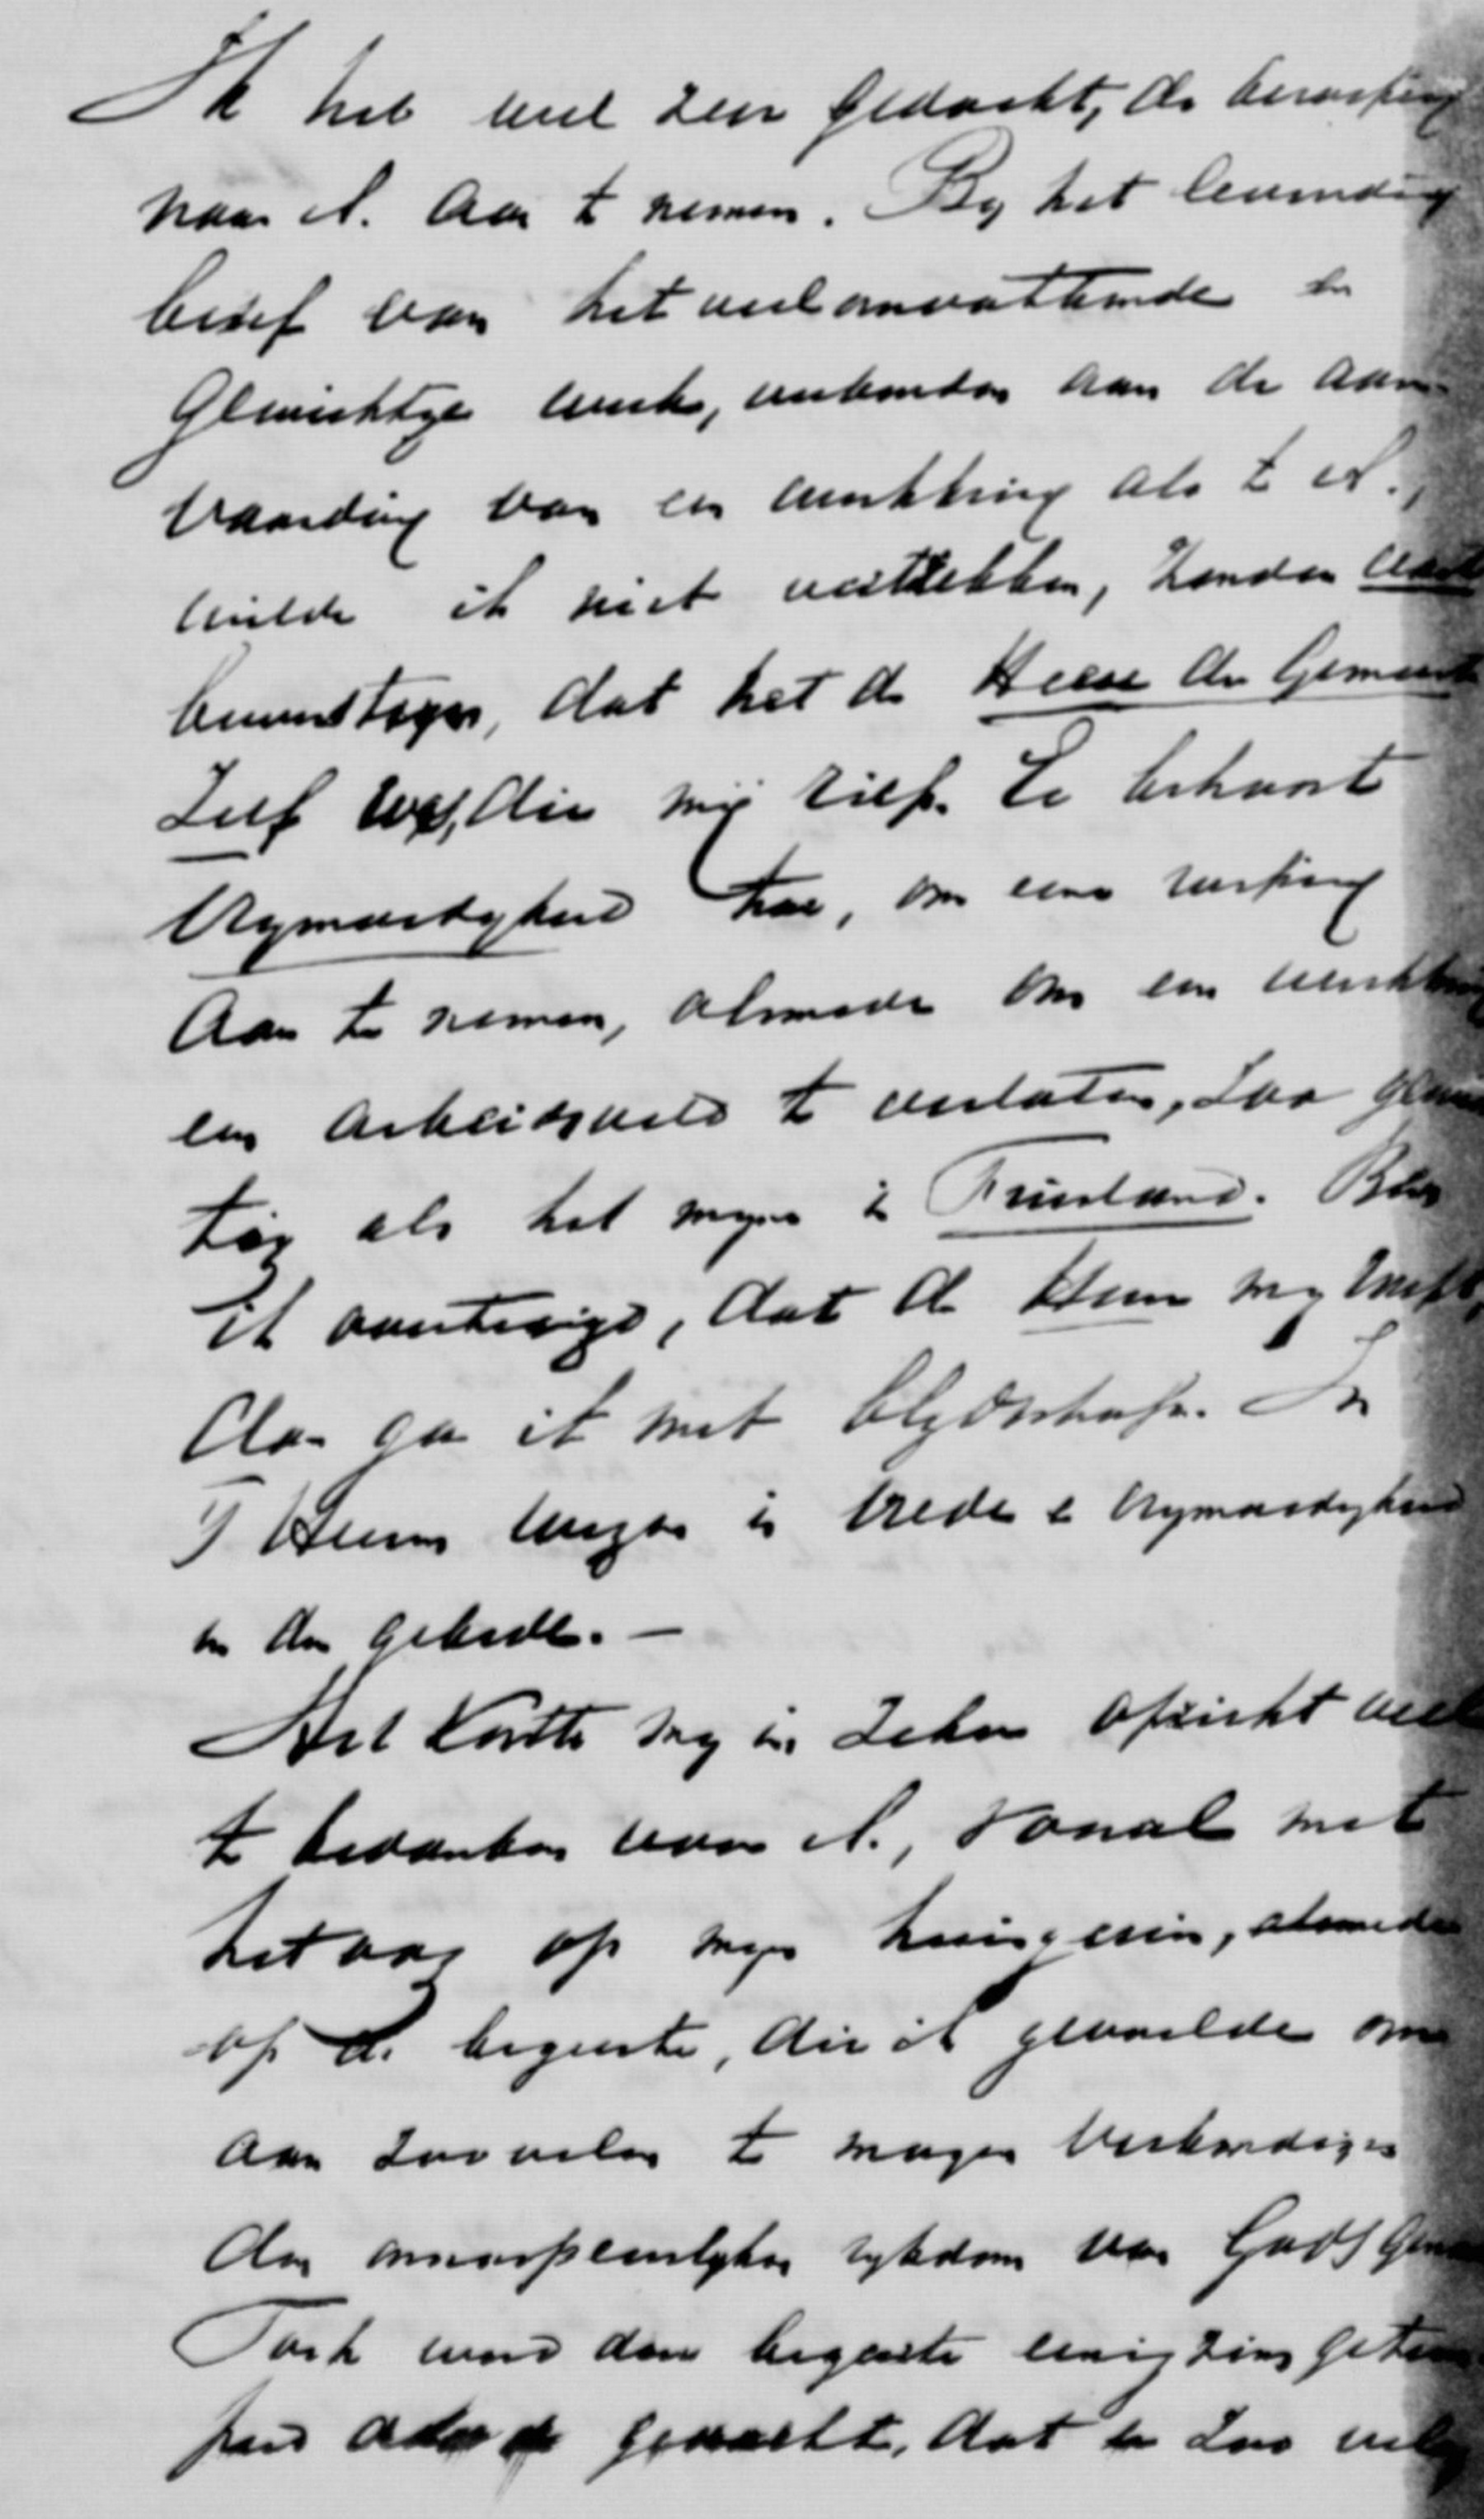 Ik heb veel zeer gedacht, de beroeping
naar A. aan te nemen. By het levendig
besef van het veelomvattende en
gewichtige werk, verbonden aan de aan-
vaarding van een werkkring als te A.,
wilde ik niet vertrekken, zonder
bewustzyn, dat het de Heere der Gemeente
Zelf was, die mij riep. Er behoort
Vrymoedigheid toe, om eene roeping
aan te nemen, alsmede om een werkkring
een arbeidsveld te verlaten, zoo
als het myne in Friesland. Ben
ik overtuigd, dat de Heere my roept,
dan ga ik met blydschap. In
's Heeren wegen is vrede en vrymoedigheid
en den gebede. —
Het kostte my in zeker opzicht veel
te bedanken voor A., vooral met
het oog op myn huisgezin, alsmede
op de begeerte, die ik gevoelde om
aan zoovelen te mogen verkondigen
den onnaspeurlyken rykdom van Gods
Toch werd deze begeerte eenigzins getem-
perd door de gedachte, dat er zoo velen